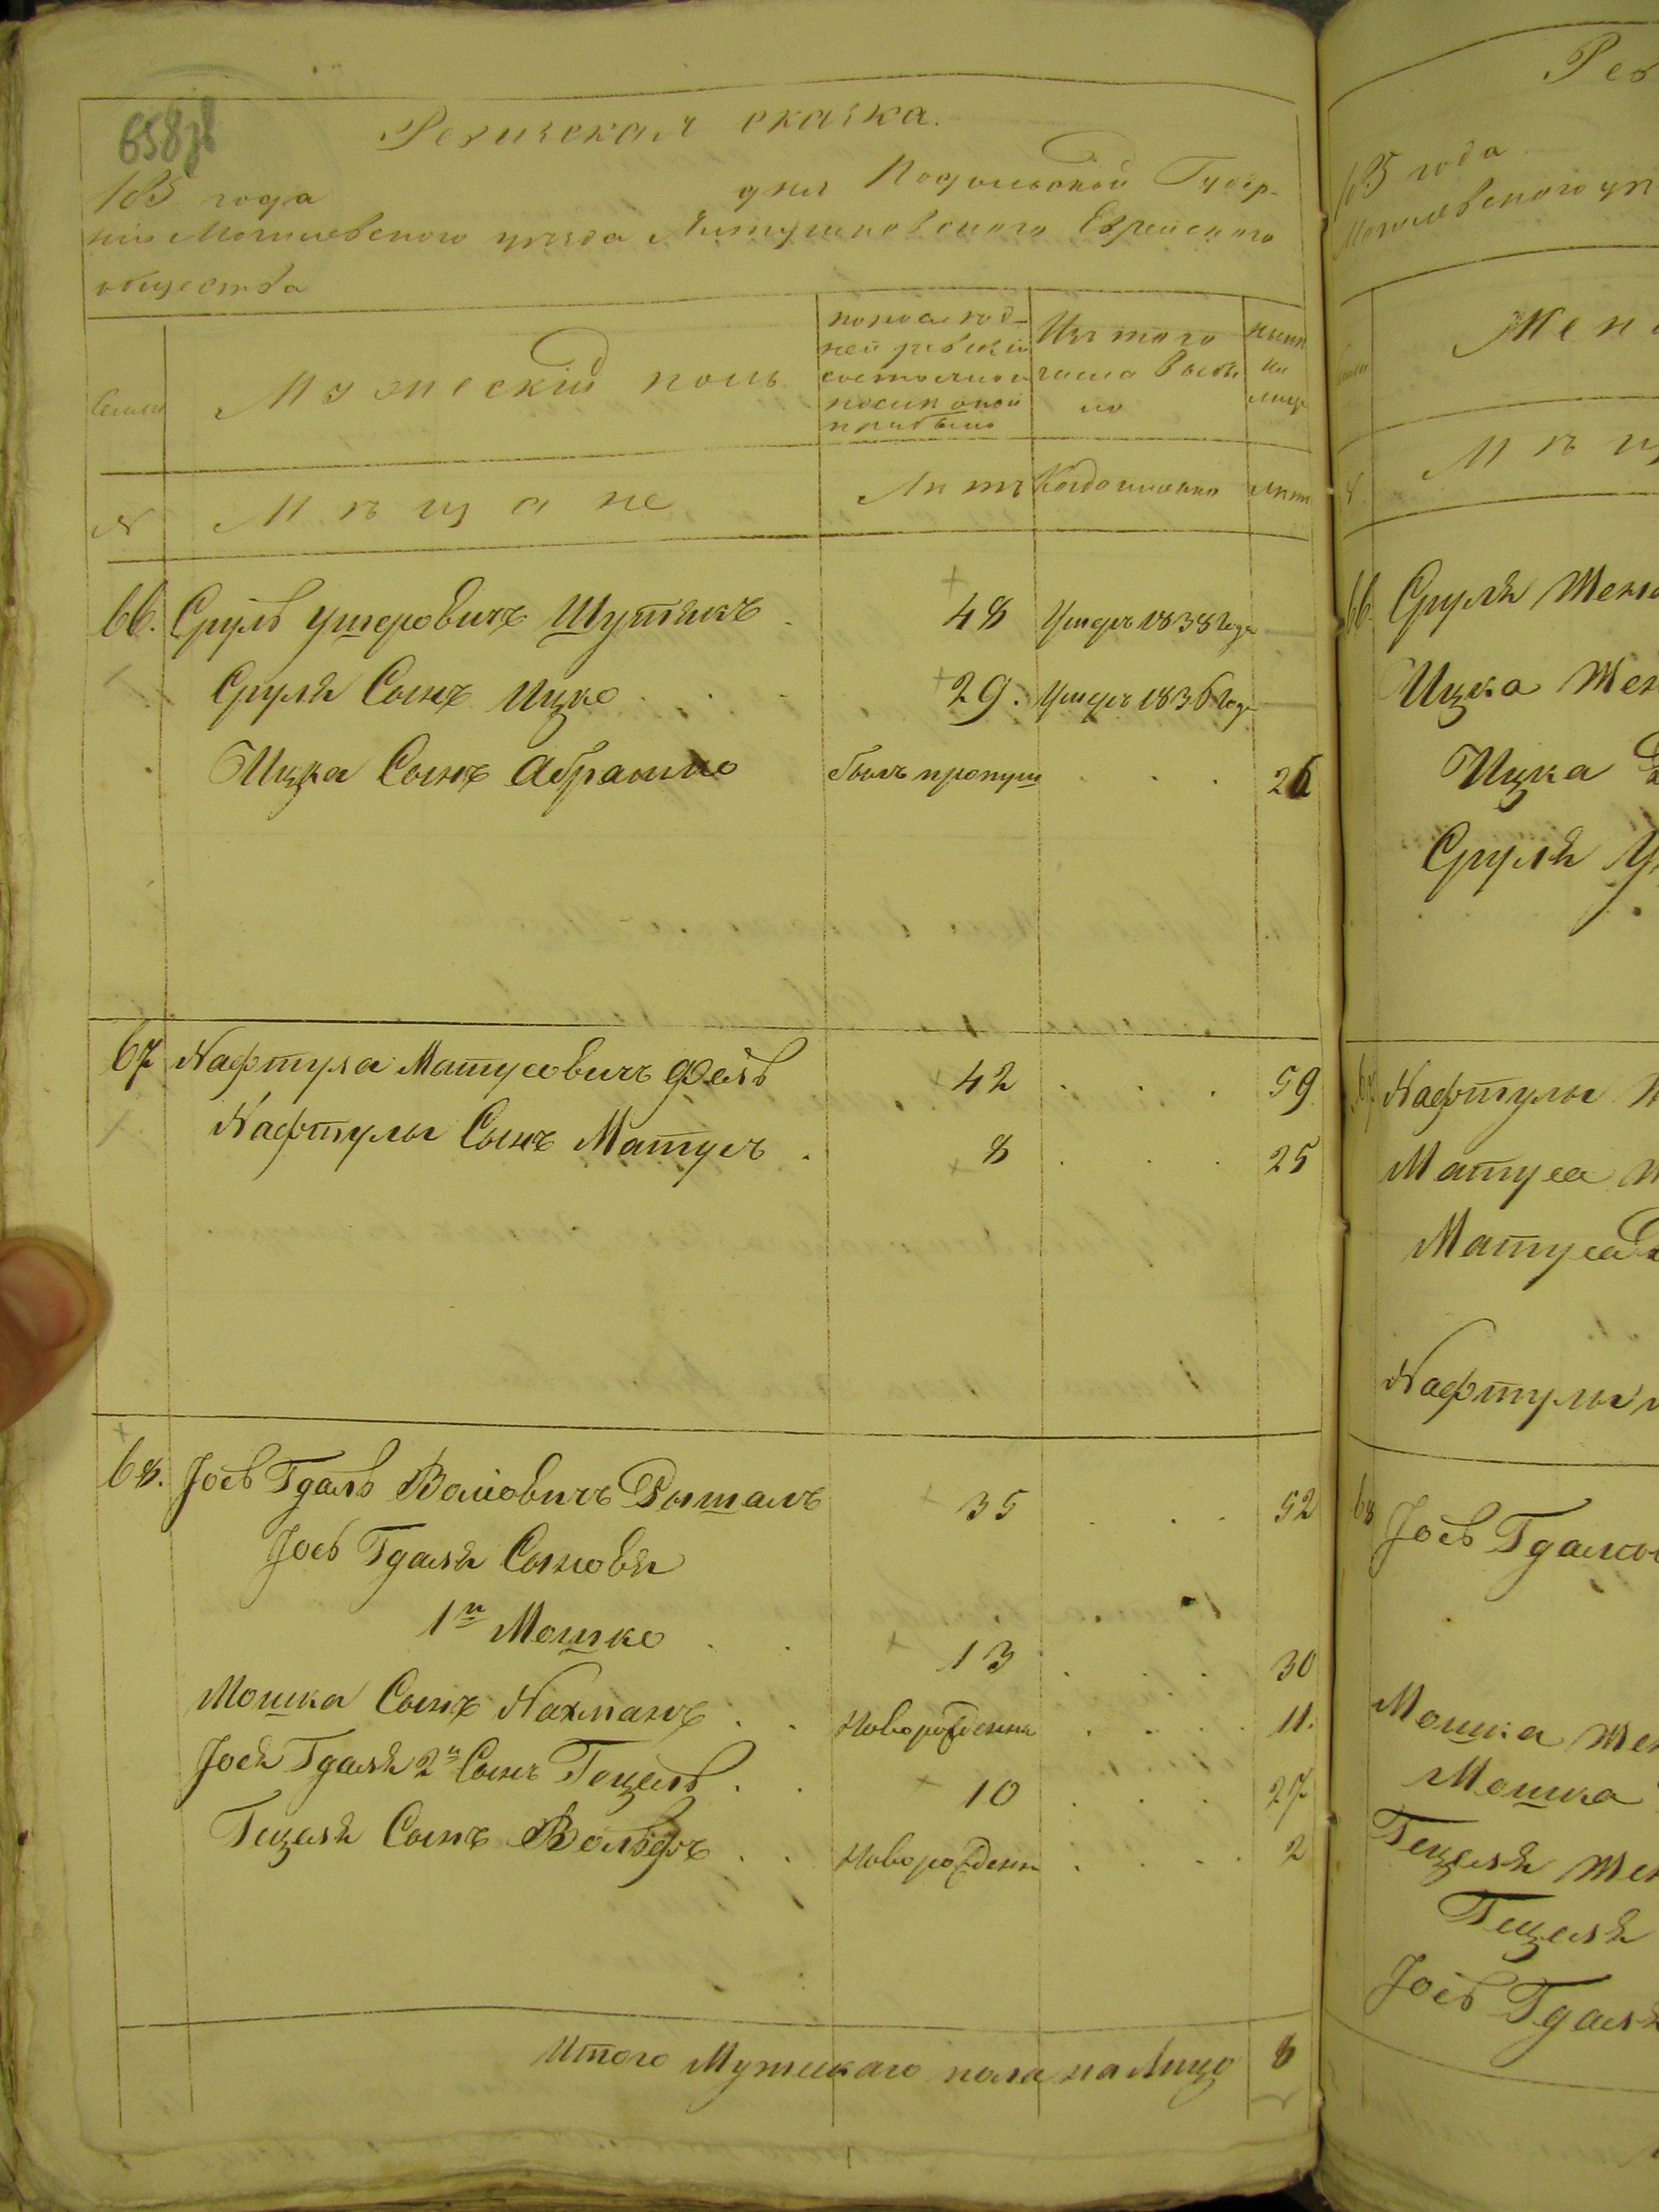 658об
Ревизская сказка.
185 года дня Подольской Губер-
нии Могилевского уезда Лучинского Еврейского
общества
Семьи
Мужеский полъ
по послед-
ней ревизіи
состояло и
после оной
прибыло
Изъ того
числа выбы
ло
ныне
на
лицо
№
Мѣщане
Лѣтъ
Когда именно
Лѣт
66. Сруль Ушеровичъ Шутикъ 48 Умеръ 1838 Года
Сруля Сынъ Ицко 29. Умеръ 1836 Года
Ицка Сынъ Абрамко былъ пропущ 26
67 Нафтула Матусовичъ Фель 42 59
Нафтулы Сынъ Матусъ 8 25
68. Іось Гдаль Волѣовичъ Ройталъ 35 52
Іось Гдаля Сыновья
1й Мошко 13 30
Мошка Сынъ Нахманъ Новорожденн 11.
Іося Гдаля 2й Сынъ Гецель 10 27
Гецеля Сынъ Вольфъ Новорожденн 2
Итого Мужескаго пола на Лицо 8
Рев
185 года
Могилевского уез
Жен
Мѣщ
66. Сруля Жена
Ицка Жен
Ицка
Сруля
67 Нафтулы
Матуса
Матуса
Нафтулы
68 Іось Гдаль
Мошка Жен
Мошка
Гецеля Жен
Гецеля
Іось Гдаля